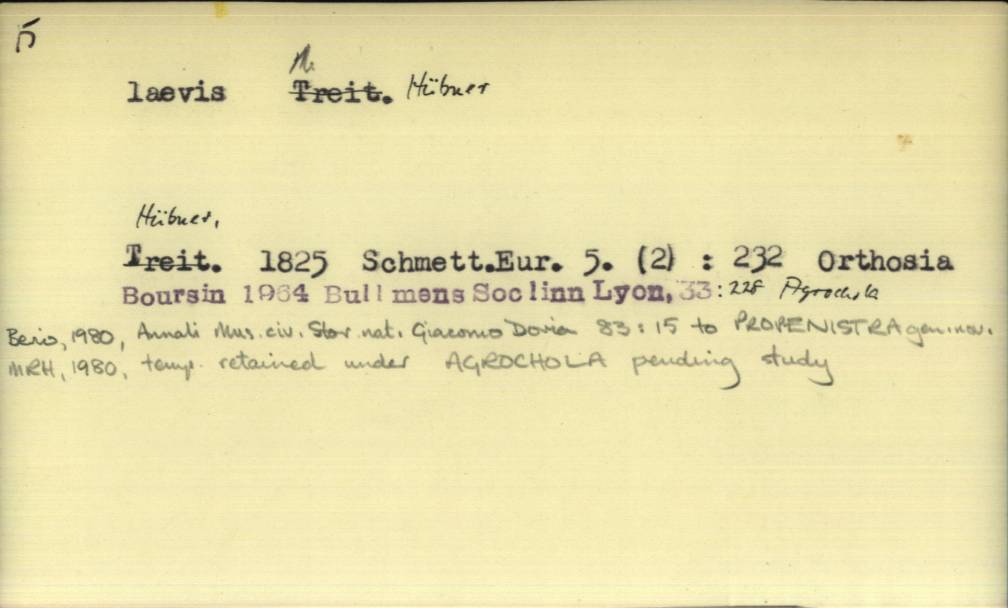 laevis Treit. Hübner
Hübner,
Treit. 1825 Schmett.Eur. 5. (2) : 232 Orthosia
Boursin 1964 Bull mens Soc linn Lyon, 33:228 Agrochola
Berio, 1980, Annali Mus. civ. Stor. nat. Giacomo Doria 83:15 to PROPENISTRA gen. nov.
MRH, 1980, temp. retained under AGROCHOLA pending study